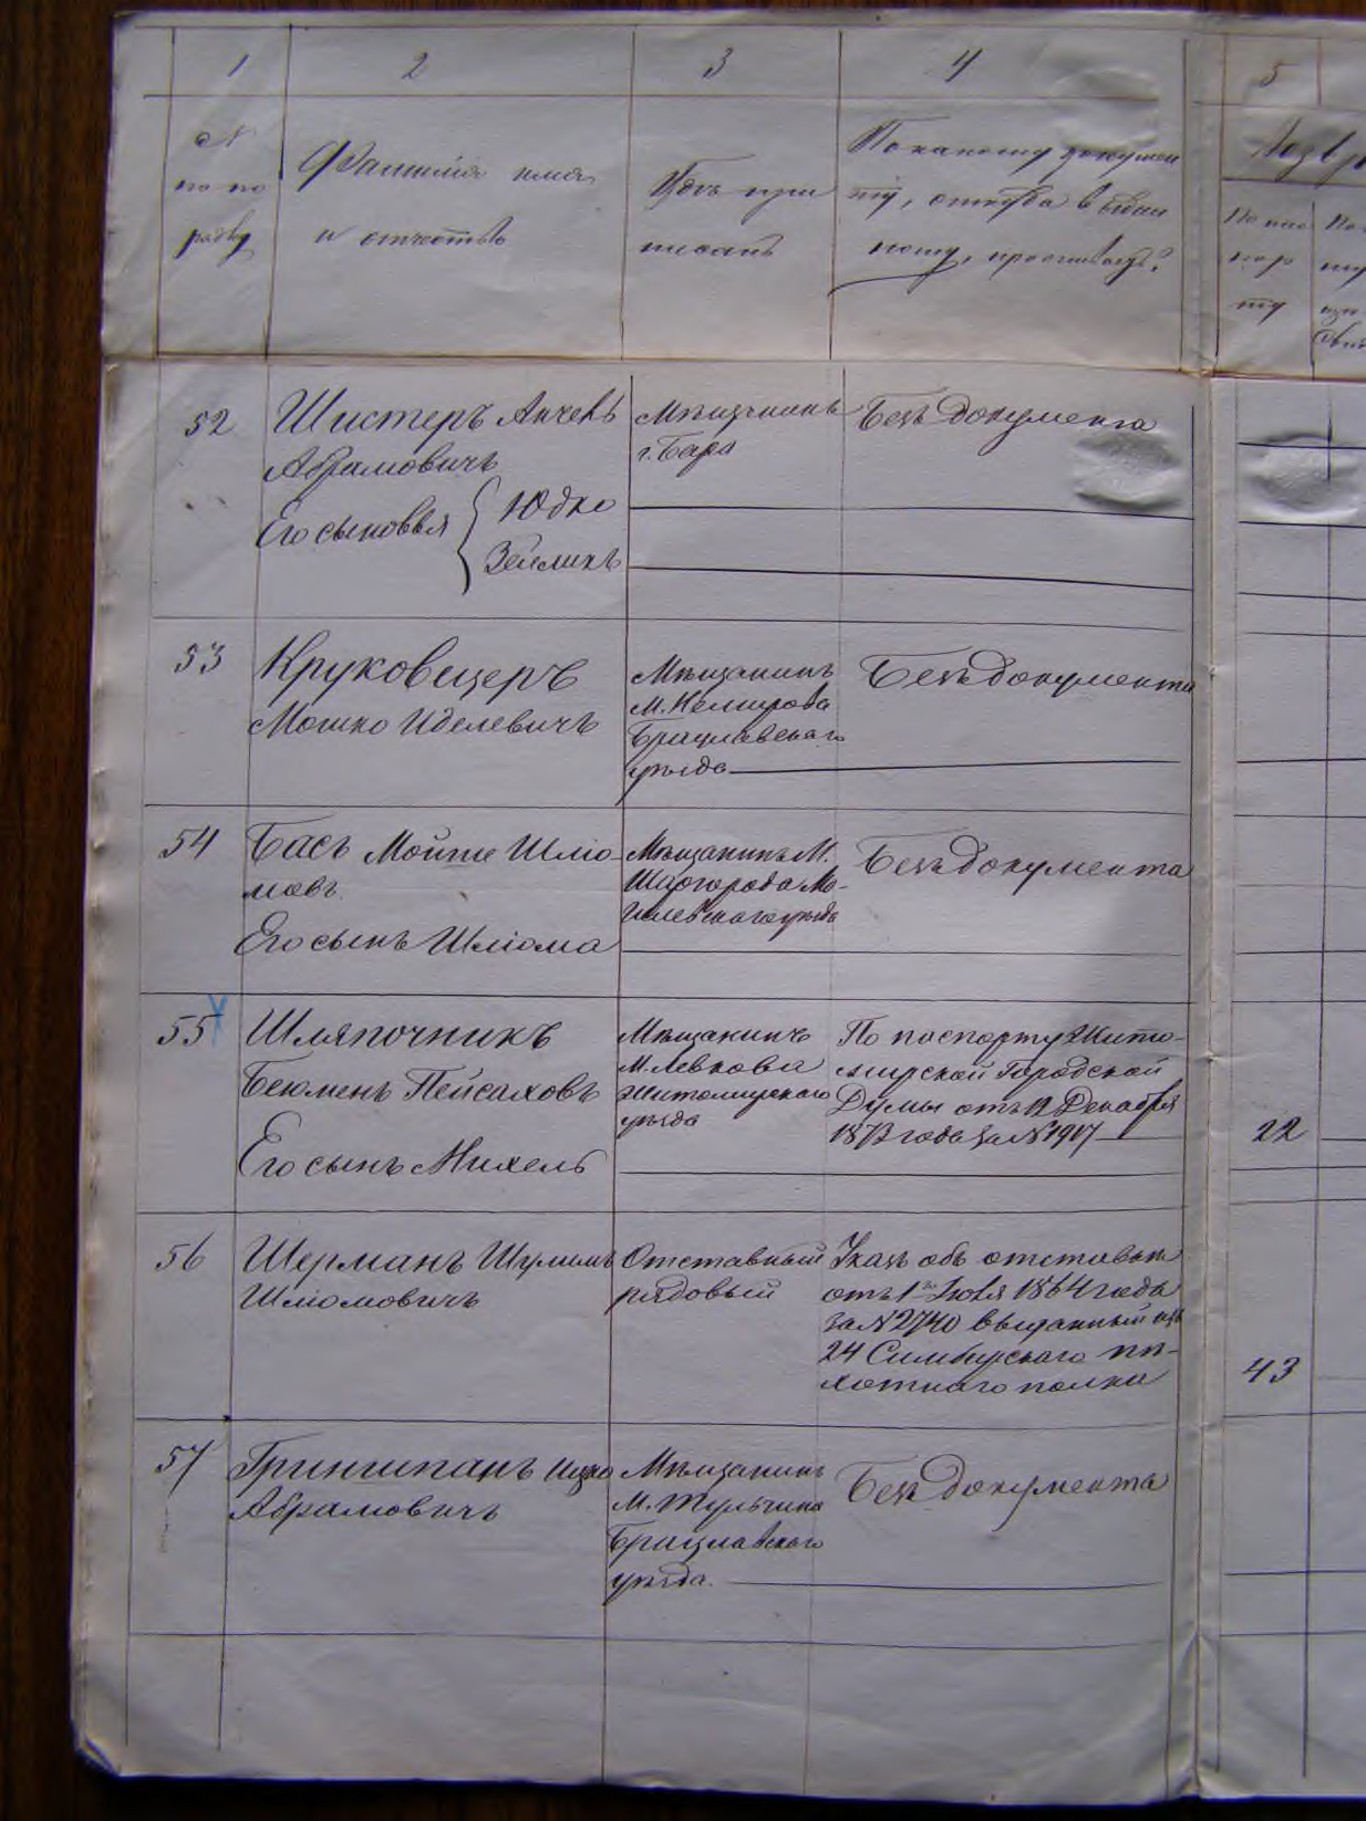 1 2 3 4 5
№ по по рядку
Фамилия имя и отчество
Гдѣ при писанъ
По какому докумен ту, откуда выдан ному, проживаетъ.
По пас пор ту
52 Шистеръ Анчель Абрамовичъ
Его сыновья { Юдко
Зейликъ
Мѣщанинъ
г. Бара
Безъ документа
53 Круковецеръ
Мошко Иделевичъ
Мѣщанинъ
М. Немирова
Брацлавскаго
уѣзда
Безъ документа
54 Басъ Мойше Шліо-
мовъ.
Его сынъ Шліома
Мѣщанинъ М.
Шаргорода Мо-
гилевскаго уѣзда
Безъ документа
55 Шляпочникъ
Бенюменъ Пейсаховъ
Его сынъ Михель
Мѣщанинъ
М. Левкова
Житомирскаго
уѣзда
По паспорту Жито-
мирской Городской
Думы отъ 12 Декабря
1873 года за № 1907
22
56 Шерманъ Шулимъ
Шліомовичъ
Отставный
рядовый
Указъ объ отставкѣ
отъ 1го Іюля 1864 года
за № 2740 выданный изъ
24 Симбирскаго пѣ-
хотнаго полка
43
57 Гриншпанъ Ицко
Абрамовичъ
Мѣщанинъ
М. Тульчина
Брацлавскаго
уѣзда.
Безъ документа